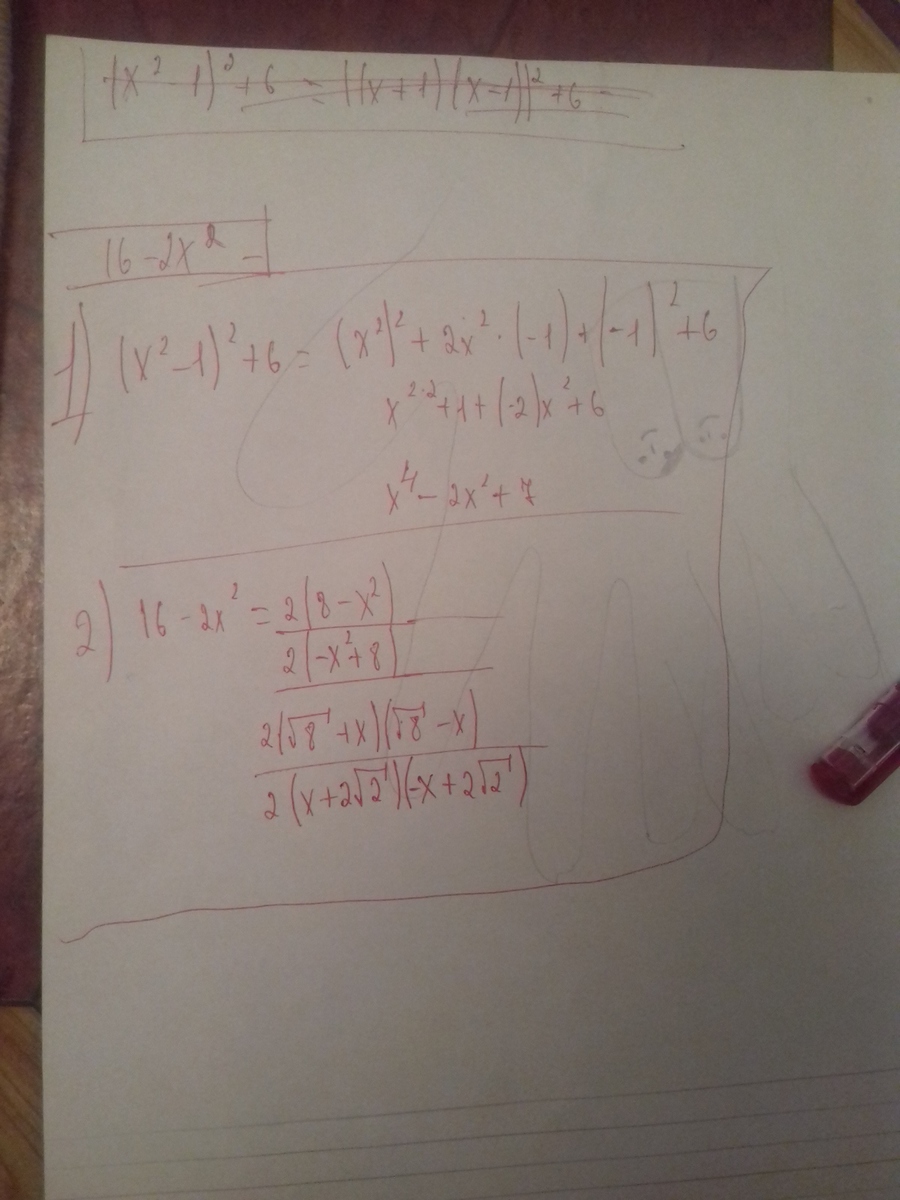 (x² - 1)² + 6 = ((x+1)(x-1))² + 6
16 - 2x² -
1) (x² - 1)² + 6 = (x²)² + 2x² · (-1) + (-1)² + 6
x²·² + 1 + (-2)x² + 6
x⁴ - 2x² + 7
2) 16 - 2x² = 2(8 - x²)
2(-x² + 8)
2(√8 + x)(√8 - x)
2(x + 2√2)(-x + 2√2)